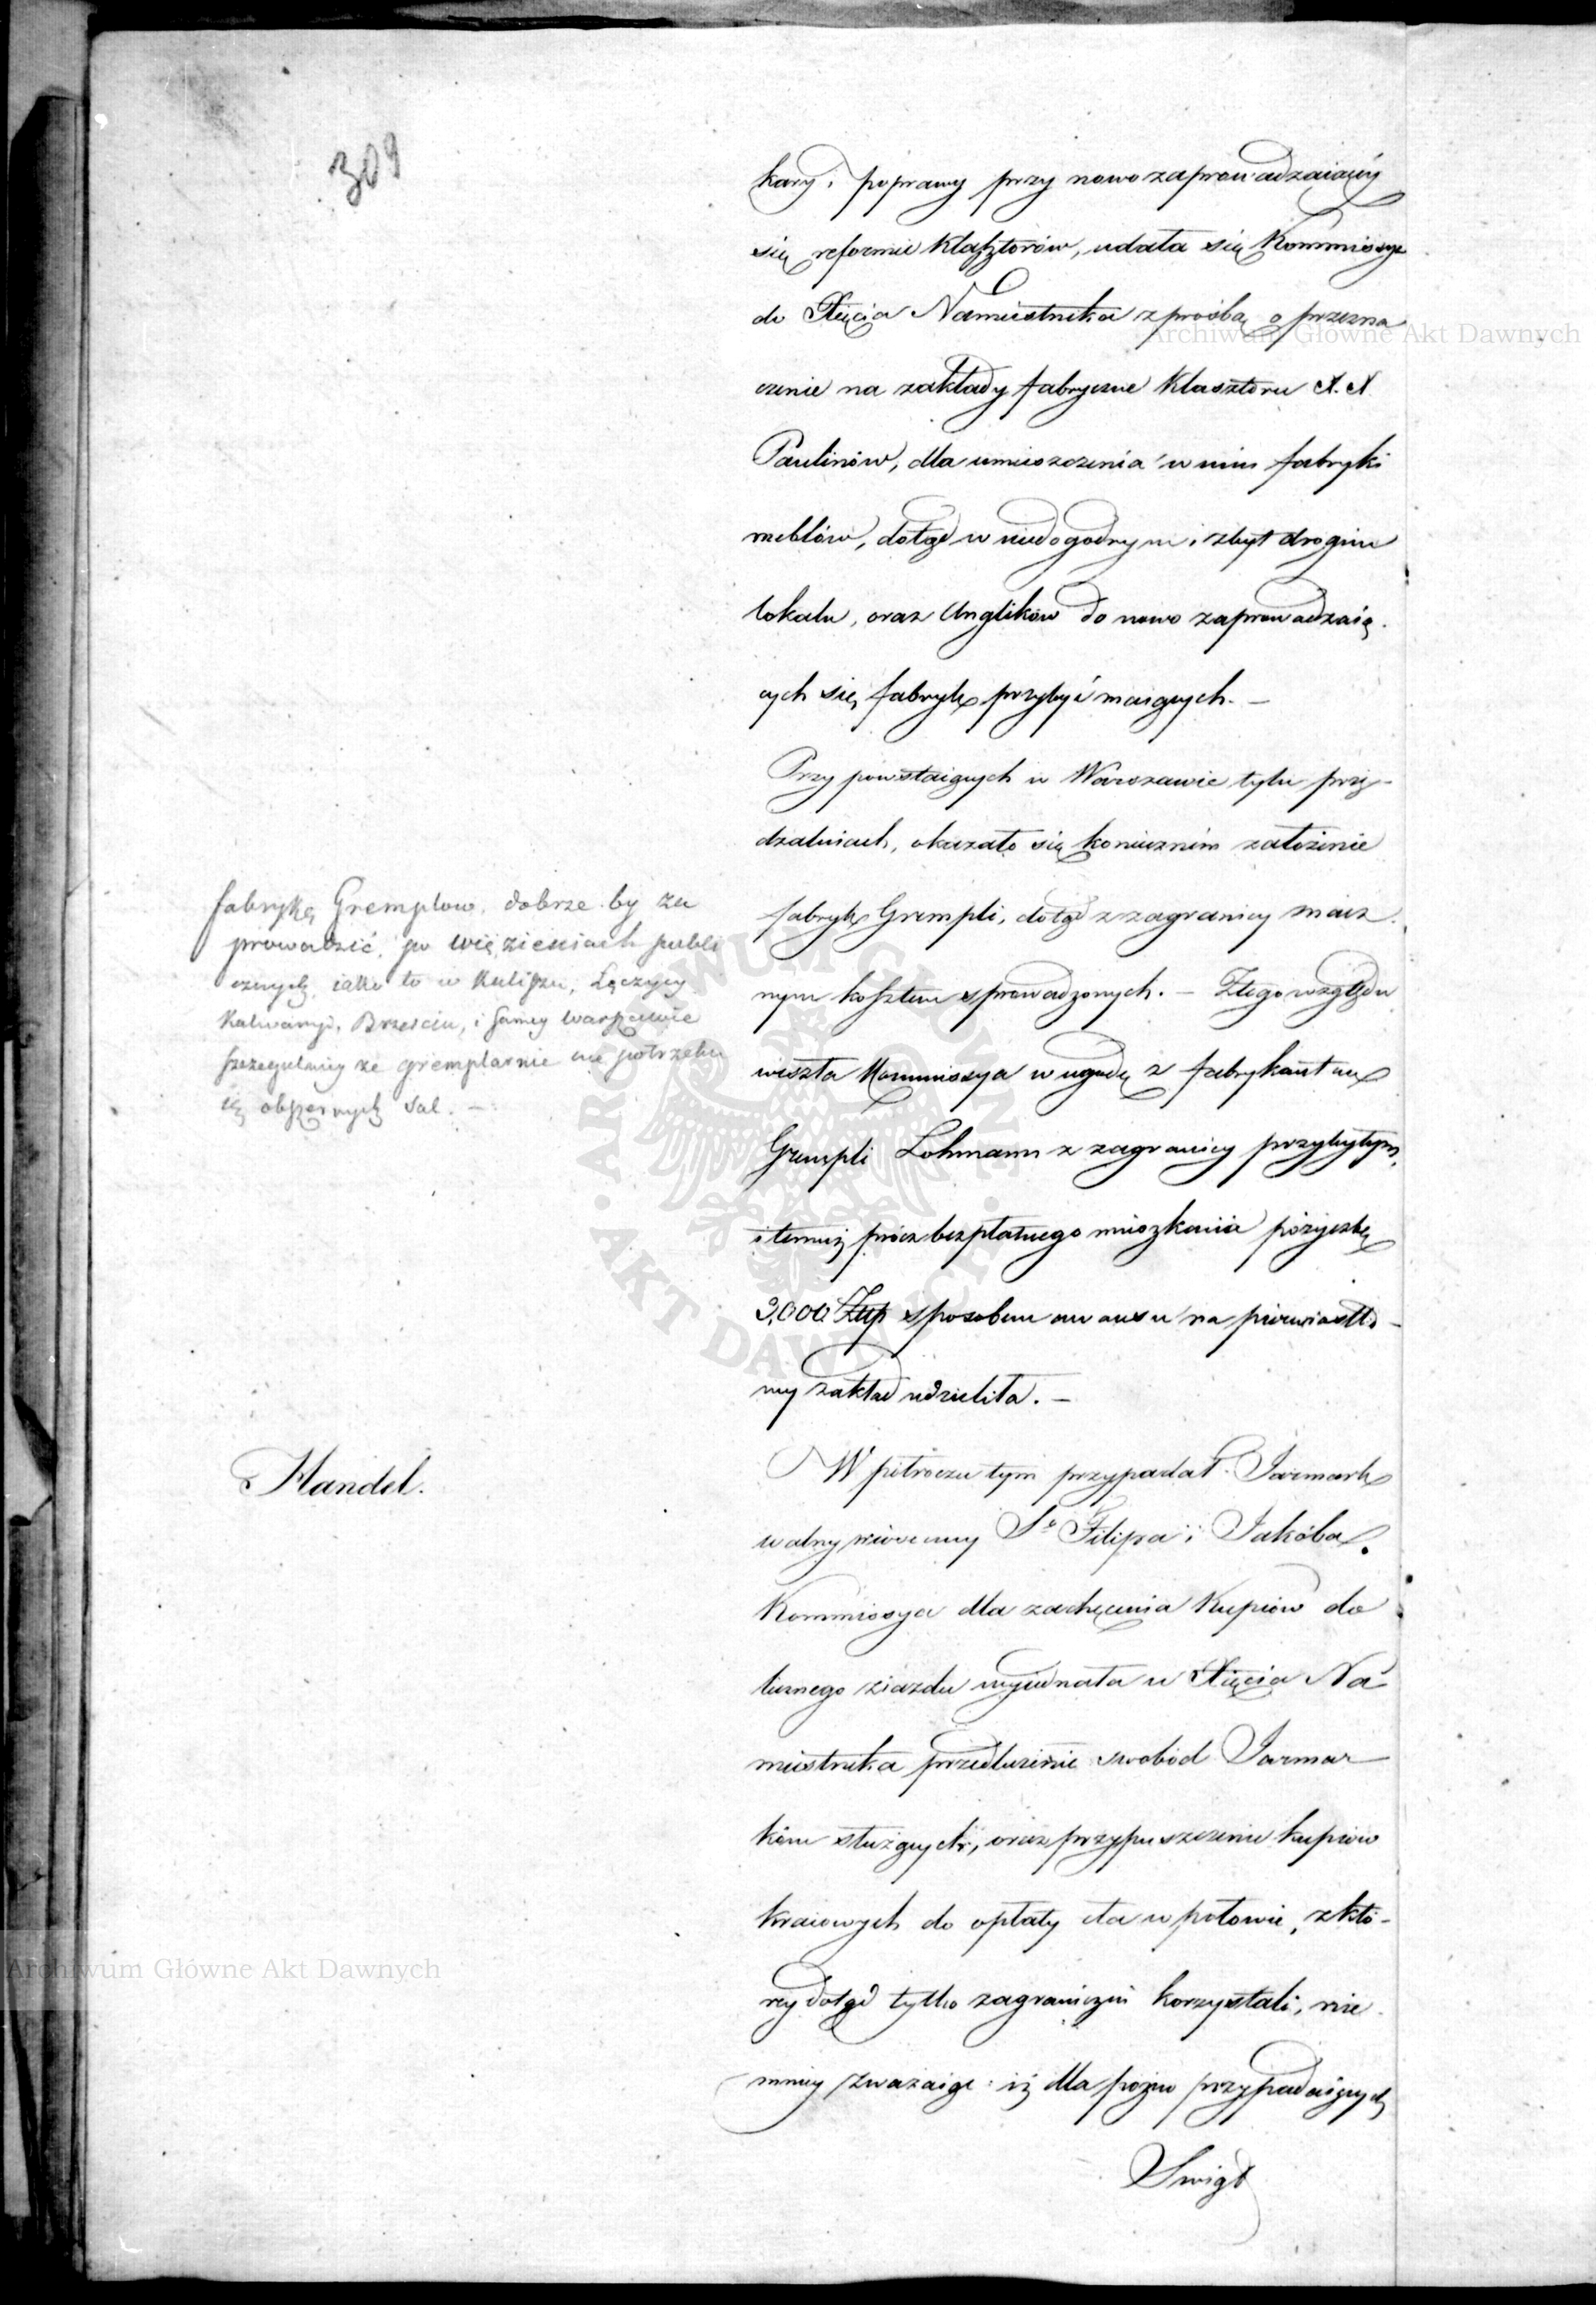 309
kary i poprawy przy nowo zaprowadzaiącéy
się reformie Klasztorów, udała się Kommissya
do Xięcia Namiestnika z prośbą o przezna
czenie na zakłady fabryczne Klasztoru X.X.
Paulinów, dla umieszczenia w nim fabryki
meblów, dotąd w niedogodnym i zbyt drogim
lokalu, oraz Anglików do nowo zaprowadzaią-
cych się fabryk przybyć maiących. —
Przy powstaiących w Warszawie tylu przę-
dzalniach, okazało się koniecznem założenie
fabryki Grempli, dotąd z zagranicy znacz-
nym kosztem sprowadzonych. — Z tego względu
weszła Kommissya w ugodę z fabrykantem
Grempli Lohmann z zagranicy przybyłym,
i temuż prócz bezpłatnego mieszkania pożyczkę
3,000 Złp sposobem awansu na pierwiastko-
wy zakład udzieliła. —
fabrykę Gremplow, dobrze by za
prowadzić, po więzieniach publi
cznych, iako to w Kaliszu, Łęczycy
Kalwaryi, Brześciu, i samey Warszawie
szczegulniey że gremplarnie nie potrzebu
ią obszernych sal. —
Handel.
W półroczu tym przypadał Jarmark
walny wiosenny Sgo Filipa i Jakóba.
Kommissya dla zachęcenia Kupców do
licznego ziazdu wyiednała u Xięcia Na-
miestnika przedłużenie swobód Jarmar
kom służących, oraz przypuszczenie kupców
kraiowych do opłaty cła w połowie, z któ-
rey dotąd tylko zagraniczni korzystali, nie
mniey zważaiąc: iż dla pózno przypadaiących
Swiąt
Archiwum Główne Akt Dawnych
Archiwum Główne Akt Dawnych
ARCHIWUM GŁÓWNE AKT DAWNYCH